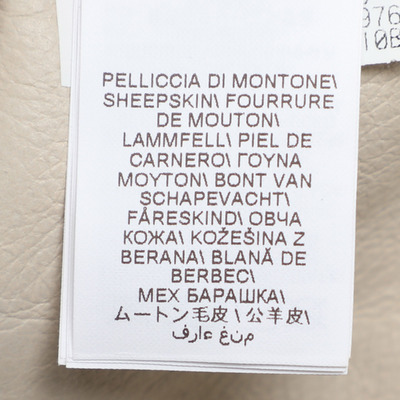 976
10B
PELLICCIA DI MONTONE\
SHEEPSKIN\ FOURRURE
DE MOUTON\
LAMMFELL\ PIEL DE
CARNERO\ ΓΟΥΝΑ
ΜΟΥΤΟΝ\ BONT VAN
SCHAPEVACHT\
FÅRESKIND\ ОВЧА
КОЖА\ KOŽEŠINA Z
BERANA\ BLANĂ DE
BERBEC\
МЕХ БАРАШКА\
ムートン毛皮\ 公羊皮\
فراء غنم